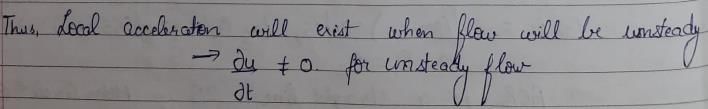 Thus, Local acceleration will exist when flow will be unsteady
→ ∂u/∂t ≠ 0. for unsteady flow